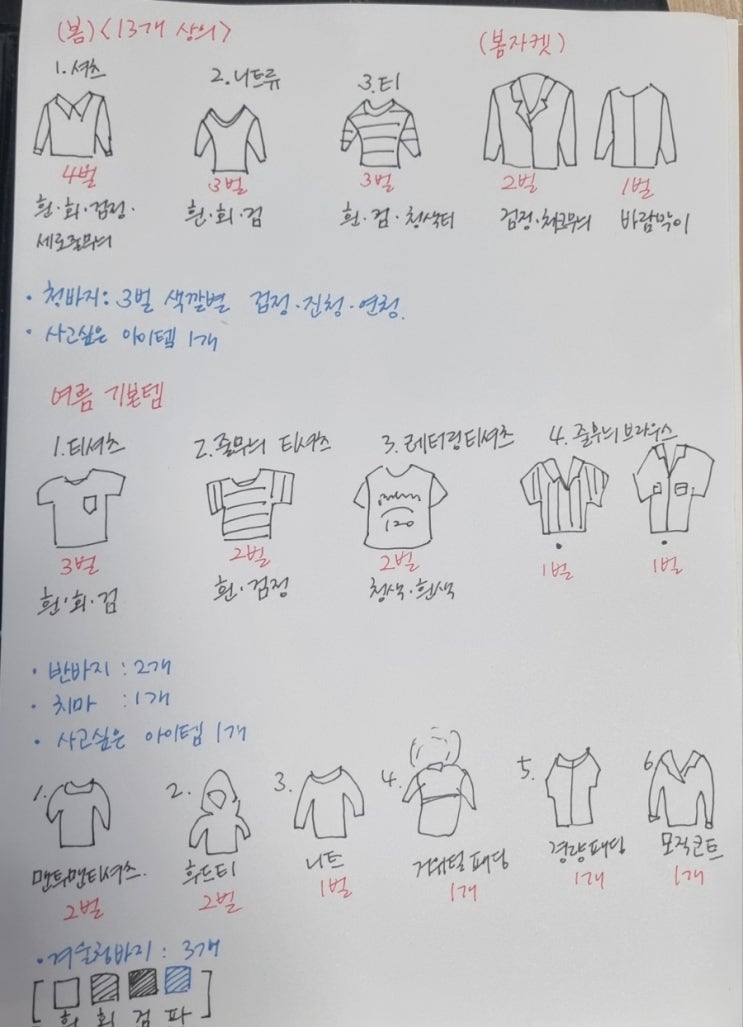 (봄) <13개 상의>
(봄자켓)
1. 셔츠
2. 니트류
3. 티
4벌
3벌
3벌
2벌
1벌
흰·회·검정·
세로줄무늬
흰·회·검
흰·검·청색티
검정·체크무늬
바람막이
• 청바지: 3벌 색깔별 검정·진청·연청.
• 사고싶은 아이템 1개
여름 기본템
1. 티셔츠
2. 줄무늬 티셔츠
3. 레터링티셔츠
4. 줄무늬브라우스
120
3벌
2벌
2벌
1벌
1벌
흰·회·검
흰·검정
청색·흰색
• 반바지 : 2개
• 치마 : 1개
• 사고싶은 아이템 1개
1.
2.
3.
4.
5.
6.
맨투맨티셔츠.
후드티
니트
거위털패딩
경량패딩
모직코트
2벌
2벌
1벌
1개
1개
1개
• 겨울청바지 : 3개
[ ]
흰 회 검 파